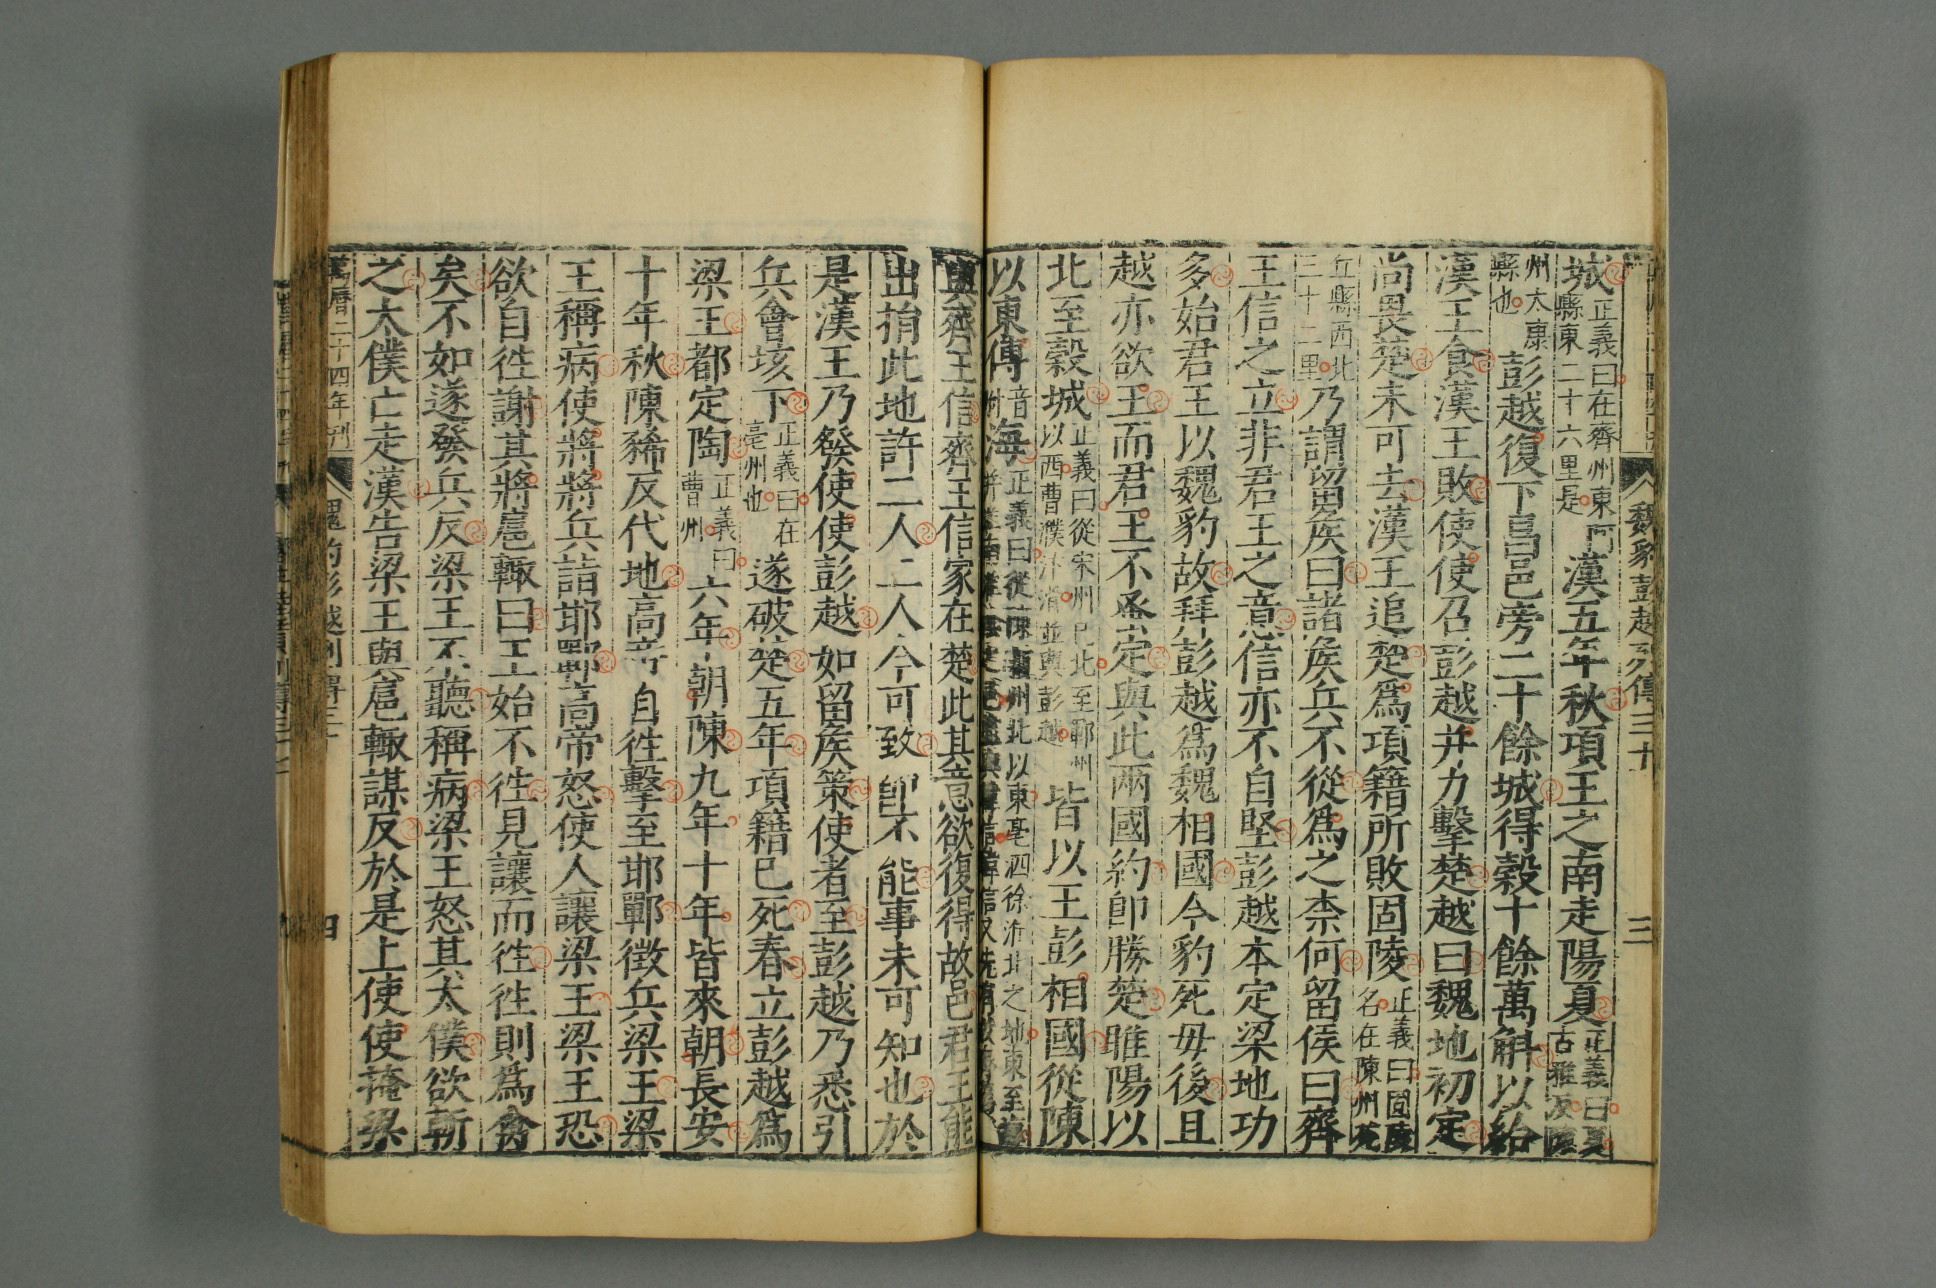 魏豹彭越列傳三十 三
城正義曰在齊州東阿縣東二十六里是漢五年秋項王之南走陽夏正義曰夏古雅反陳
州太康縣也彭越復下昌邑旁二十餘城得穀十餘萬斛以給
漢王食漢王敗使使召彭越并力擊楚越曰魏地初定
尚畏楚未可去漢王追楚爲項籍所敗固陵正義曰固陵名在陳州宛
丘縣西北三十二里乃謂留侯曰諸侯兵不從爲之柰何留侯曰齊
王信之立非君王之意信亦不自堅彭越本定梁地功
多始君王以魏豹故拜彭越爲魏相國今豹死毋後且
越亦欲王而君王不蚤定與此兩國約即勝楚睢陽以
北至穀城正義曰從宋州已北至鄆州以西曹濮汴滑並與彭越皆以王彭相國從陳
以東傅音附海正義曰從陳潁州北以東亳泗徐淮北之地東至
與齊王信齊王信家在楚此其意欲復得故邑君王能
出捐此地許二人二人今可致即不能事未可知也於
是漢王乃發使使彭越如留侯策使者至彭越乃悉引
兵會垓下正義曰在亳州也遂破楚五年項籍已死春立彭越爲
梁王都定陶正義曰曹州六年朝陳九年十年皆來朝長安
十年秋陳豨反代地高帝自往擊至邯鄲徵兵梁王梁
王稱病使將將兵詣邯鄲高帝怒使人讓梁王梁王恐
欲自往謝其將扈輙曰王始不往見讓而往往則爲禽
矣不如遂發兵反梁王不聽稱病梁王怒其太僕欲斬
之太僕亡走漢告梁王與扈輙謀反於是上使使掩梁
萬曆二十四年刊 魏豹彭越列傳三十 四